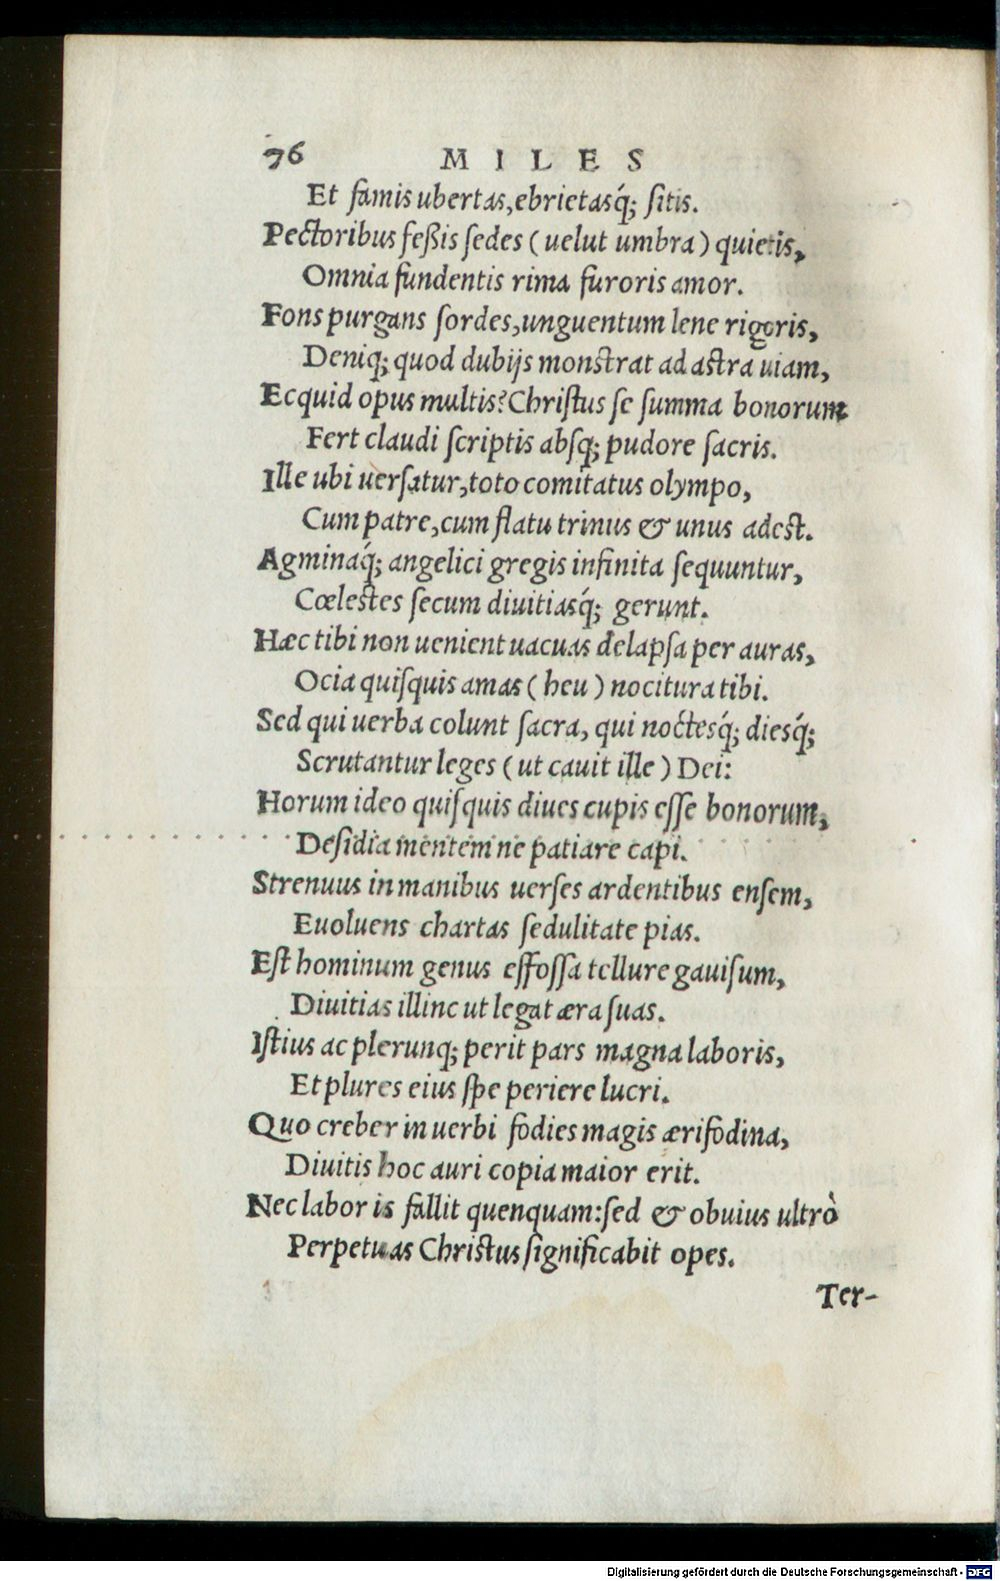 76 MILES
Et famis ubertas, ebrietasq́; ſitis.
Pectoribus feßis ſedes (uelut umbra) quietis,
Omnia fundentis rima furoris amor.
Fons purgans ſordes, unguentum lene rigoris,
Deniq; quod dubijs monſtrat ad aſtra uiam,
Ecquid opus multis? Chriſtus ſe ſumma bonorum
Fert claudi ſcriptis abſq; pudore ſacris.
Ille ubi uerſatur, toto comitatus olympo,
Cum patre, cum flatu trinus & unus adeſt.
Agminaq́; angelici gregis infinita ſequuntur,
Cœleſtes ſecum diuitiasq́; gerunt.
Hæc tibi non uenient uacuas delapſa per auras,
Ocia quiſquis amas (heu) nocitura tibi.
Sed qui uerba colunt ſacra, qui noctesq́; diesq́;
Scrutantur leges (ut cauit ille) Dei:
Horum ideo quiſquis diues cupis eſſe bonorum,
Deſidia mentem ne patiare capi.
Strenuus in manibus uerſes ardentibus enſem,
Euoluens chartas ſedulitate pias.
Eſt hominum genus effoſſa tellure gauiſum,
Diuitias illinc ut legat æra ſuas.
Iſtius ac plerunq; perit pars magna laboris,
Et plures eius ſpe periere lucri.
Quo creber in uerbi fodies magis ærifodina,
Diuitis hoc auri copia maior erit.
Nec labor is fallit quenquam: ſed & obuius ultrò
Perpetuas Chriſtus ſignificabit opes.
Ter-
Digitalisierung gefördert durch die Deutsche Forschungsgemeinschaft - DFG